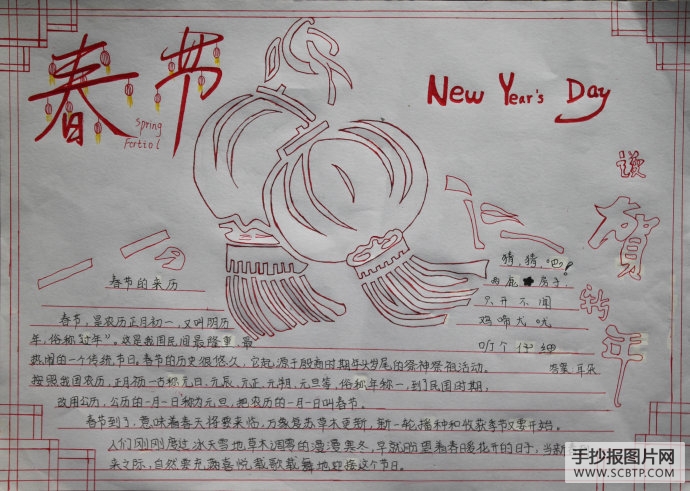 春节
Spring
Fertiol
New Year's Day
谨
贺
新
年
春节的来历
猜,猜,吧?
两扇 房子,
只开不闭
鸡啼尤吠
听个仔细
答案:耳朵
春节,是农历正月初一,又叫阴历
年,俗称“过年”。这是我国民间最隆重,最
热闹的一个传统节日。春节的历史很悠久,它起源于殷商时期年头岁尾的祭神祭祖活动。
按照我国农历,正月初一古称元日,元辰,元正,元朔,元旦等,俗称年初一,到了民国时期,
改用公历,公历的一月一日称为元旦,把农历的一月一日叫春节。
春节到了,意味着春天将要来临,万象复苏草木更新,新一轮播种和收获季节又要开始。
人们刚刚度过冰天雪地草木凋零的漫漫寒冬,早就盼望着春暖花开的日子,当新春到
来之际,自然要充满喜悦载歌载舞地迎接这个节日。
手抄报图片网
WWW.SCBTP.COM